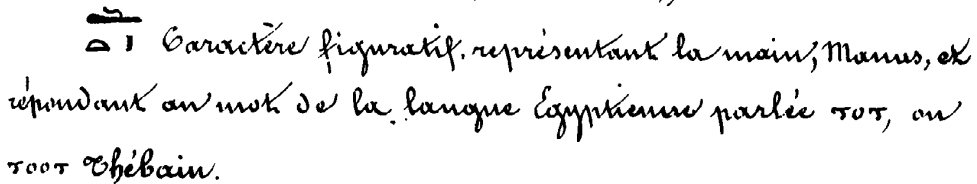 Caractère figuratif, représentant la main, Manus, et
répondant au mot de la langue Égyptienne parlée ⲧⲟⲧ, ou
ⲧⲟⲟⲧ Thébain.